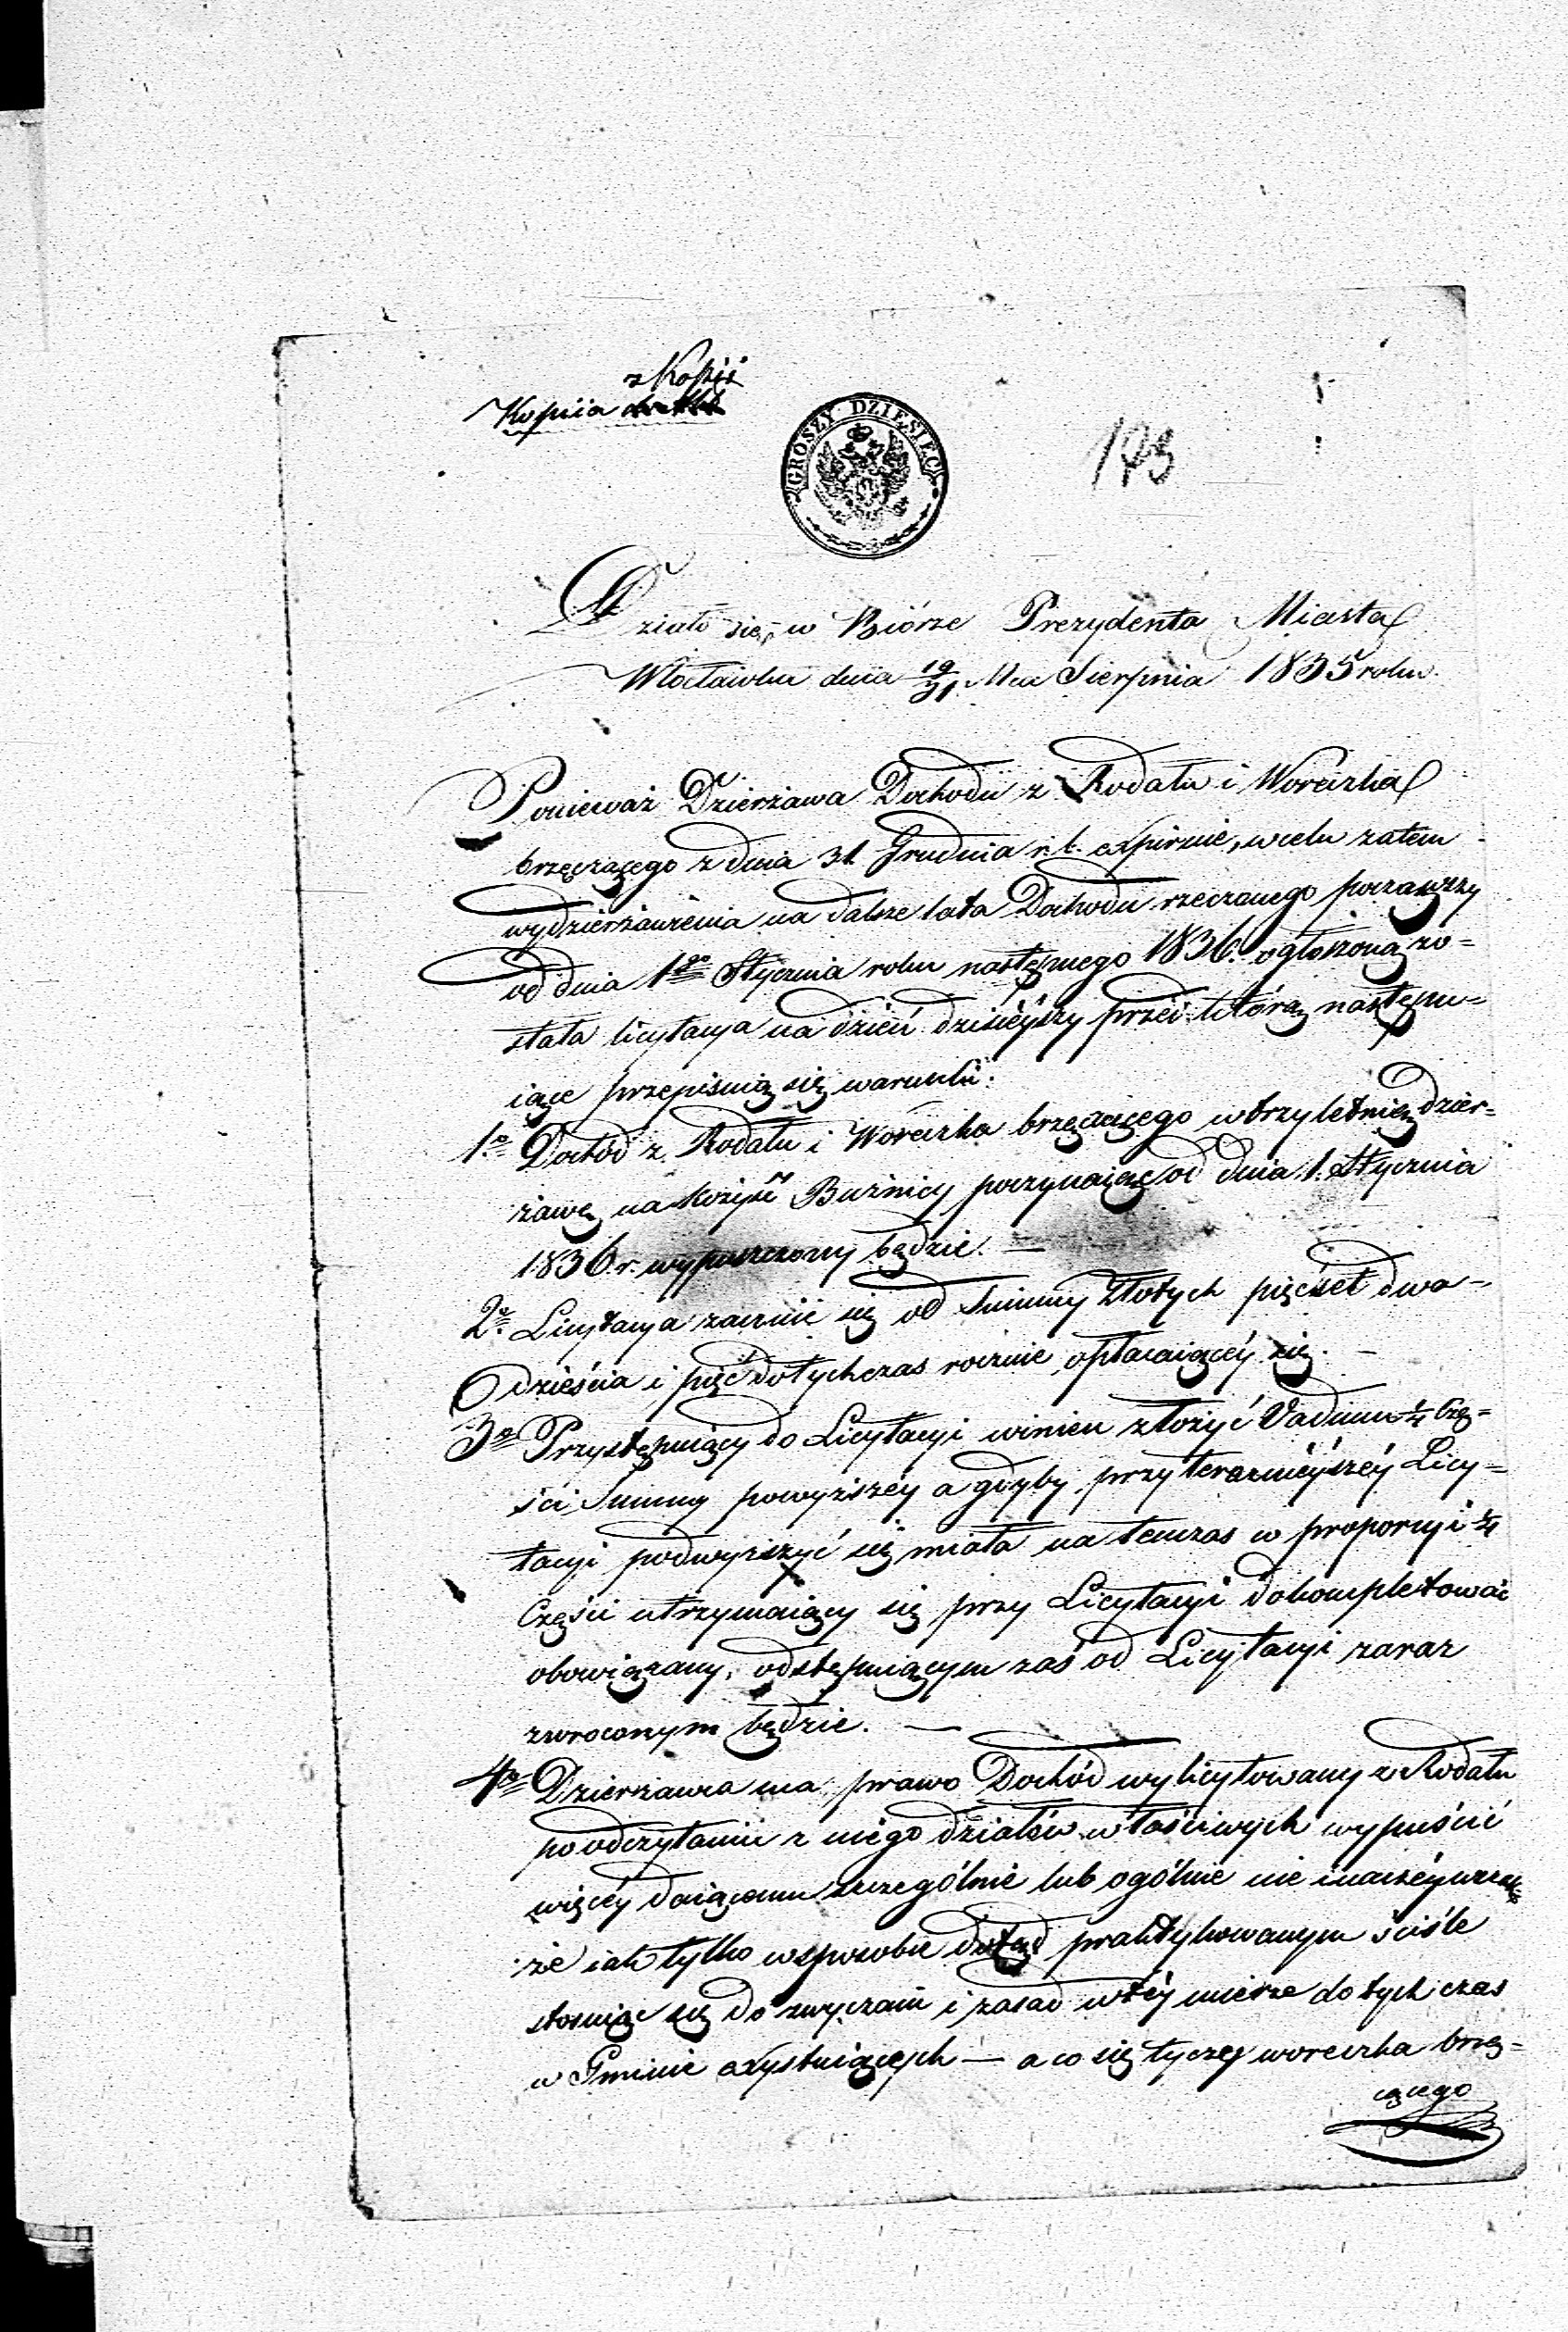 z Kopii
Kopiia
GROSZY DZIESIĘC
173
Działo się w Biórze Prezydenta Miasta
Włocławka dnia 19/31 Mca Sierpnia 1835 roku.
Ponieważ Dzierżawa Dochodu z Rodału i Woreczka
brzęczącego z dnia 31 Grudnia r. b. expiruie, w celu zatem
wydzierżawienia na dalsze lata Dochodu rzeczonego począwszy
od dnia 1go Stycznia roku następnego 1836. ogłoszoną zo=
stała licytacya na dzień dzisieyszy przed którą następu=
iące przepisuią się warunki.
1o Dochód z Rodału i Woreczka brzęczącego w trzyletnią dzier=
żawę na korzyść Bużnicy poczynaiąc od dnia 1. Stycznia
1836 r. wypuszczony będzie. —
2o Licytacya zacznie się od Summy Złotych pięćset dwa=
dzieścia i pięć dotychczas rocznie opłacaiącéy się. —
3o Przystępuiący do Licytacyi winien złożyć Vadium ¼ Czę=
ści Summy powyższéy a gdyby przy teraznieyszéy Licy=
tacyi podwyższyć się miała na tenczas w proporcyi ¼
Części utrzymaiący się przy Licytacyi dokompletować
obowiązany, odstępuiącym zaś od Licytacyi zaraz
zwroconym będzie. —
4o Dzierżawca ma prawo Dochód wylicytowany z Rodału
po odczytaniu z niego działów właściwych wypuścić
więcéy daiącemu szczególnie lub ogólnie nie inaczéy wszak=
że iak tylko w sposobie dotąd praktykowanym ściśle
stosuiąc się do zwyczaiu i zasad w téy mierze dotychczas
w Gminie exystuiących — a co się tyczy woreczka brzę=
czącego